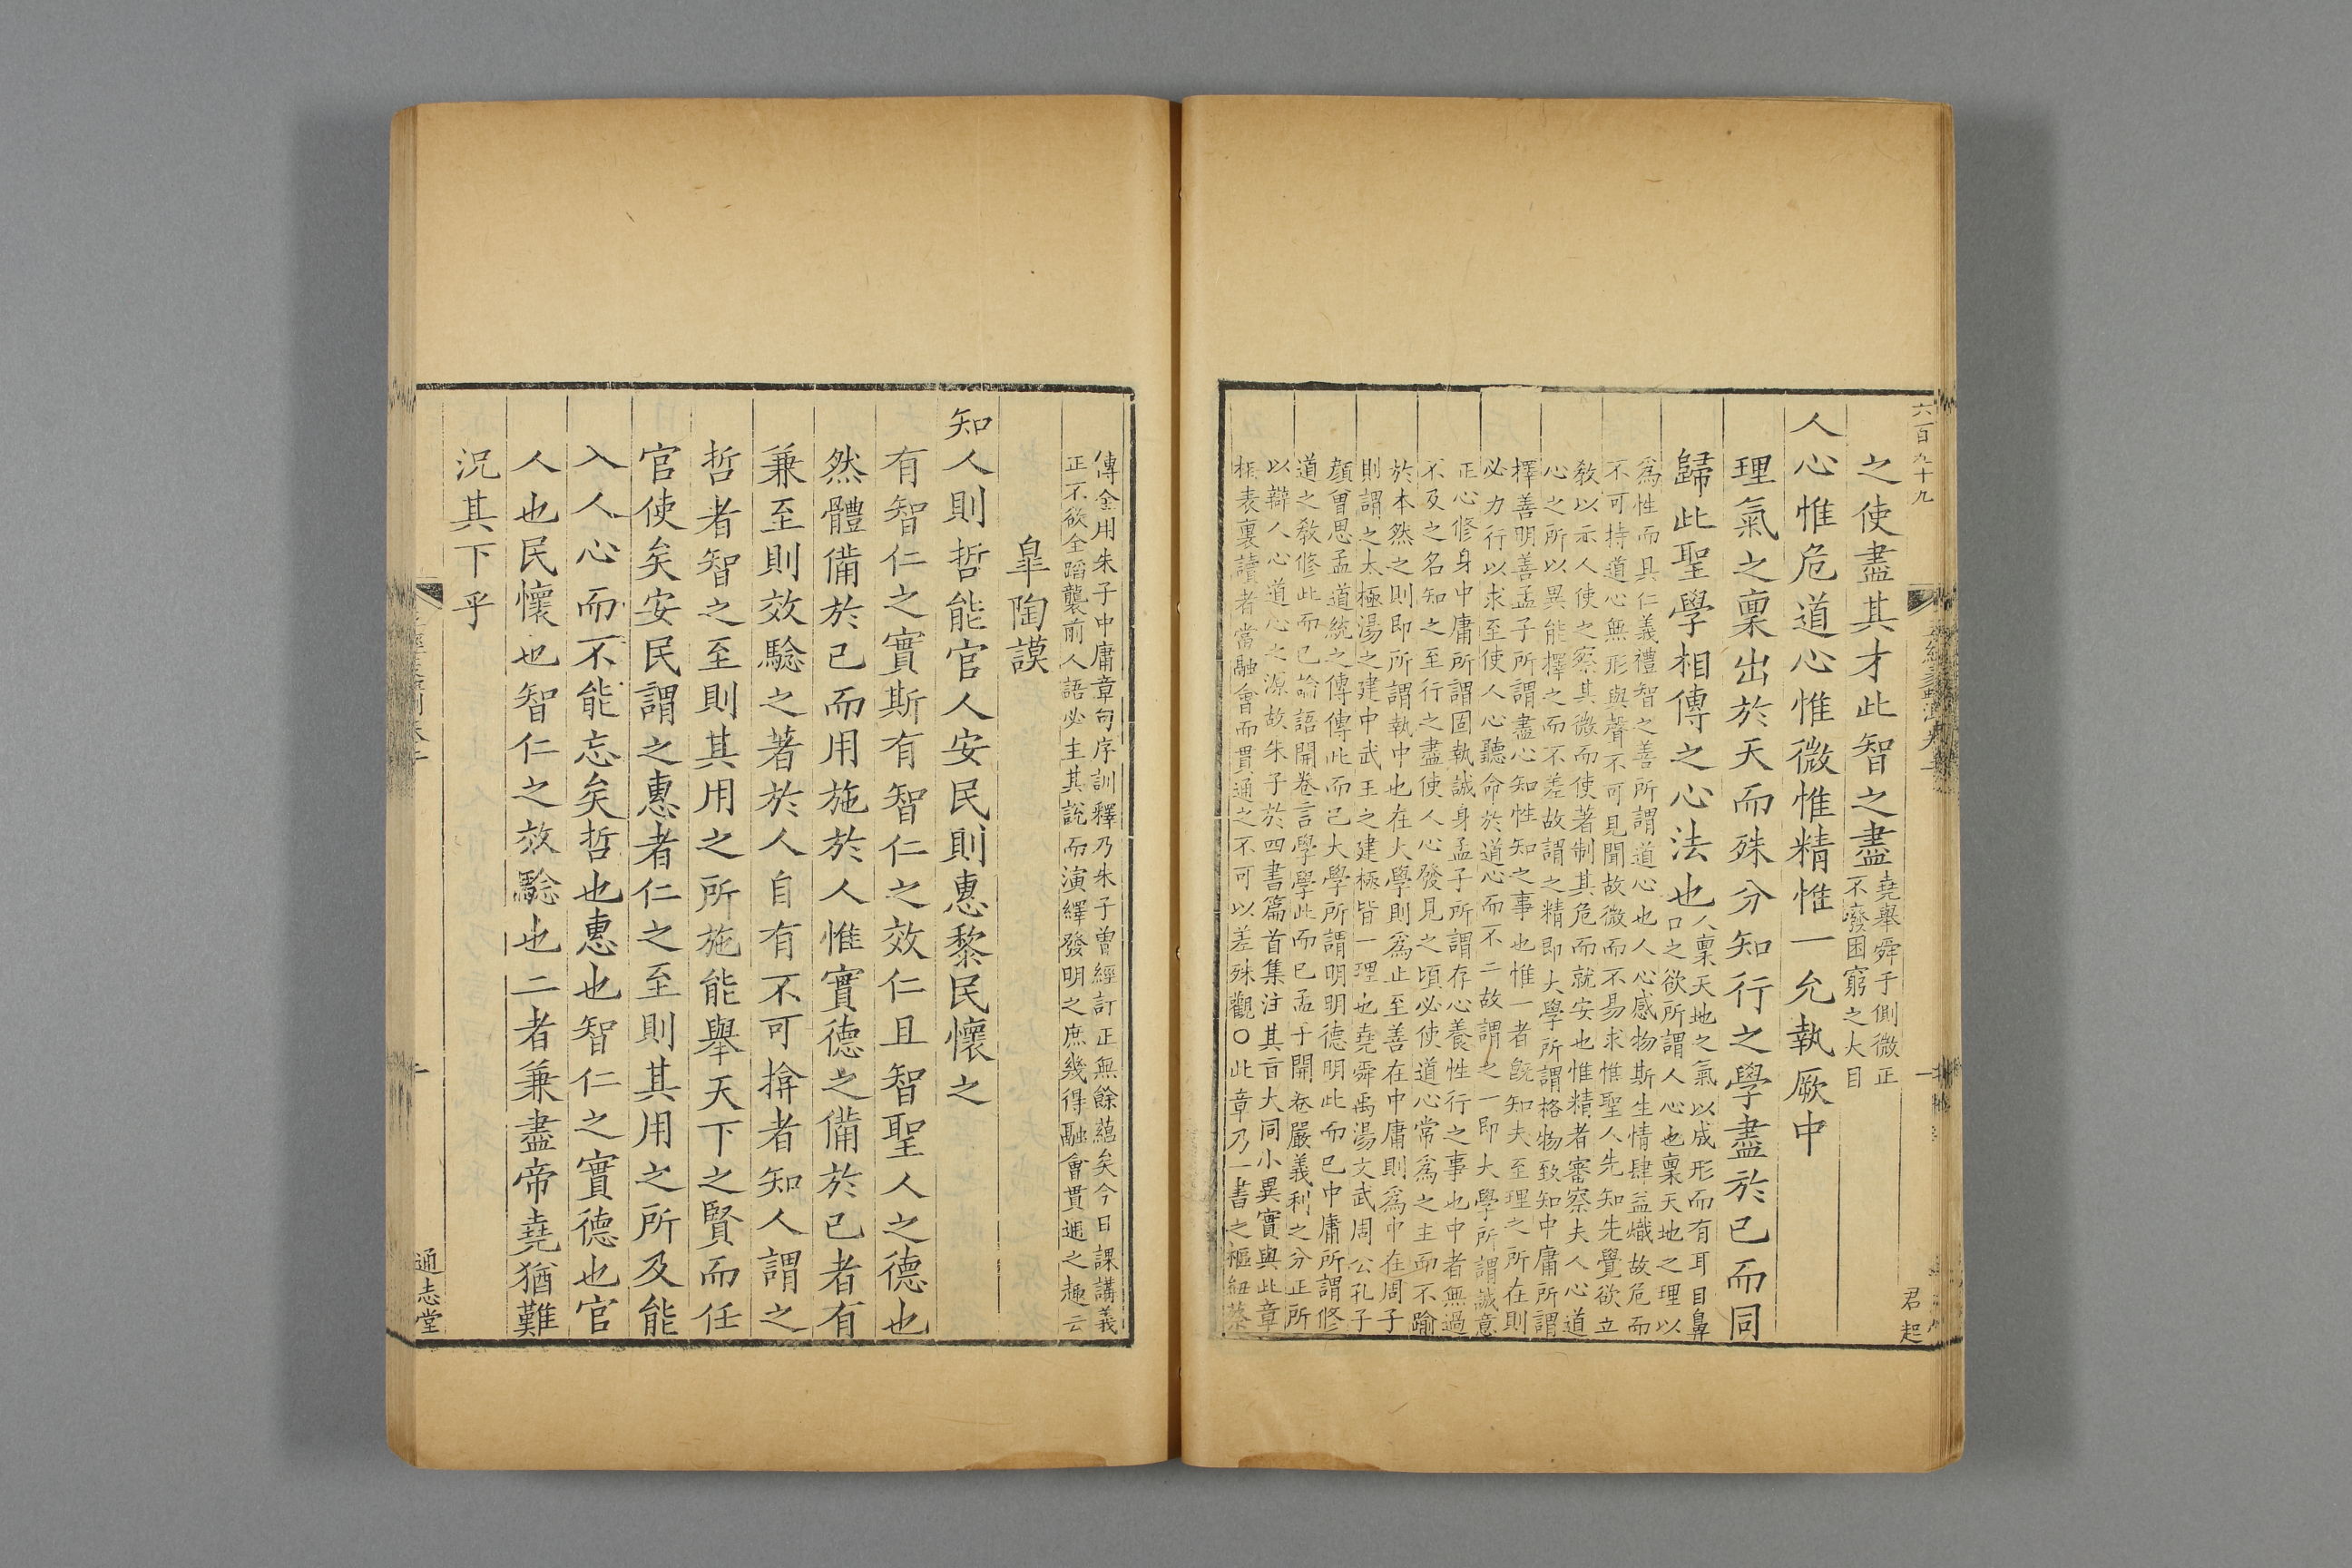 六百九十九
君起
之使盡其才此智之盡堯舉舜于側微正
不廢困窮之大目
人心惟危道心惟微惟精惟一允執厥中
理氣之稟出於天而殊分知行之學盡於已而同
歸此聖學相傳之心法也人稟天地之氣以成形而有耳目鼻
口之欲所謂人心也稟天地之理以
為性而具仁義禮智之善所謂道心也人心感物斯生情肆益熾故危而
不可持道心無形與聲不可見聞故微而不易求惟聖人先知先覺欲立
教以示人使之察其微而使著制其危而就安也惟精者審察夫人心道
心之所以異能擇之而不差故謂之精即大學所謂格物致知中庸所謂
擇善明善孟子所謂盡心知性知之事也惟一者旣知夫至理之所在則
必力行以求至使人心聽命於道心而不二故謂之一即大學所謂誠意
正心修身中庸所謂固執誠身孟子所謂存心養性行之事也中者無過
不及之名知之至行之盡使人心發見之頃必使道心常為之主而不踰
於本然之則即所謂執中也在大學則為止至善在中庸則為中在周子
則謂之太極湯之建中武王之建極皆一理也堯舜禹湯文武周公孔子
顏曾思孟道統之傳傳此而已大學所謂明明德明此而已中庸所謂修
道之教修此而已論語開卷言學學此而已孟子開卷嚴義利之分正所
以辯人心道心之源故朱子於四書篇首集注其言大同小異實與此章
相表裏讀者當融會而貫通之不可以差殊觀○此章乃一書之樞紐蔡
傳全用朱子中庸章句序訓釋乃朱子曾經訂正無餘蘊矣今日課講義
正不欲全蹈襲前人語必主其說而演繹發明之庶幾得融會貫通之趣云
皐陶謨
知人則哲能官人安民則惠黎民懷之
有智仁之實斯有智仁之效仁且智聖人之德也
然體備於已而用施於人惟實德之備於已者有
兼至則效驗之著於人自有不可揜者知人謂之
哲者智之至則其用之所施能舉天下之賢而任
官使矣安民謂之惠者仁之至則其用之所及能
入人心而不能忘矣哲也惠也智仁之實德也官
人也民懷也智仁之效驗也二者兼盡帝堯猶難
況其下乎
通志堂